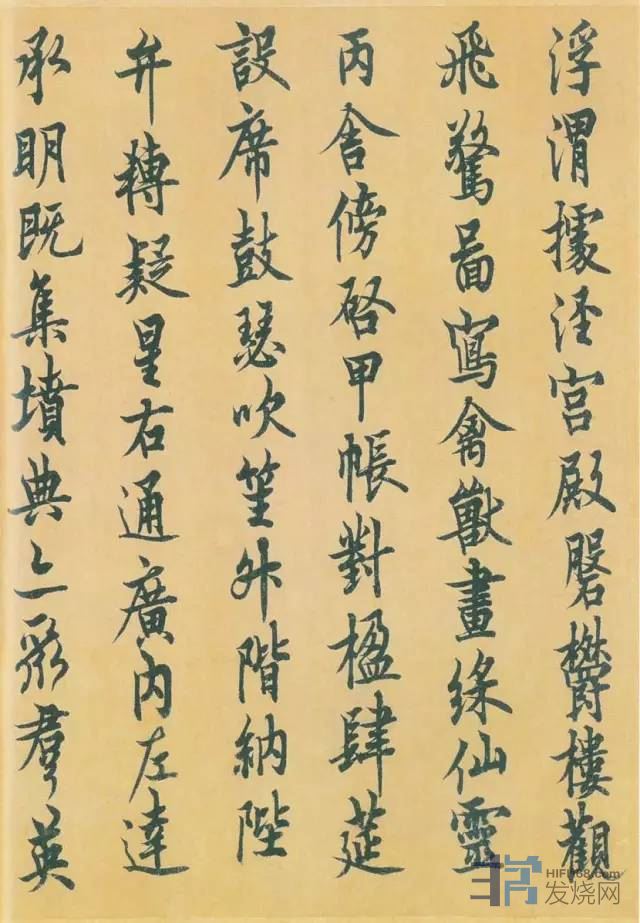 浮渭據涇宮殿磐欝樓觀
飛驚啚寫禽獸畫綵仙靈
丙舍傍啓甲帳對楹肆莚
設席鼓瑟吹笙外階納陛
弁轉疑星右通廣內左達
承明既集墳典亦聚群英
HIFI168.com
发烧网